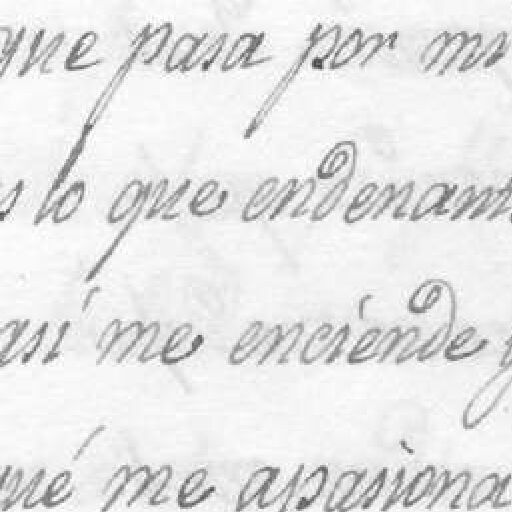 que pasa por mi
s lo que endenant
así me enciende y
qué me apasiona